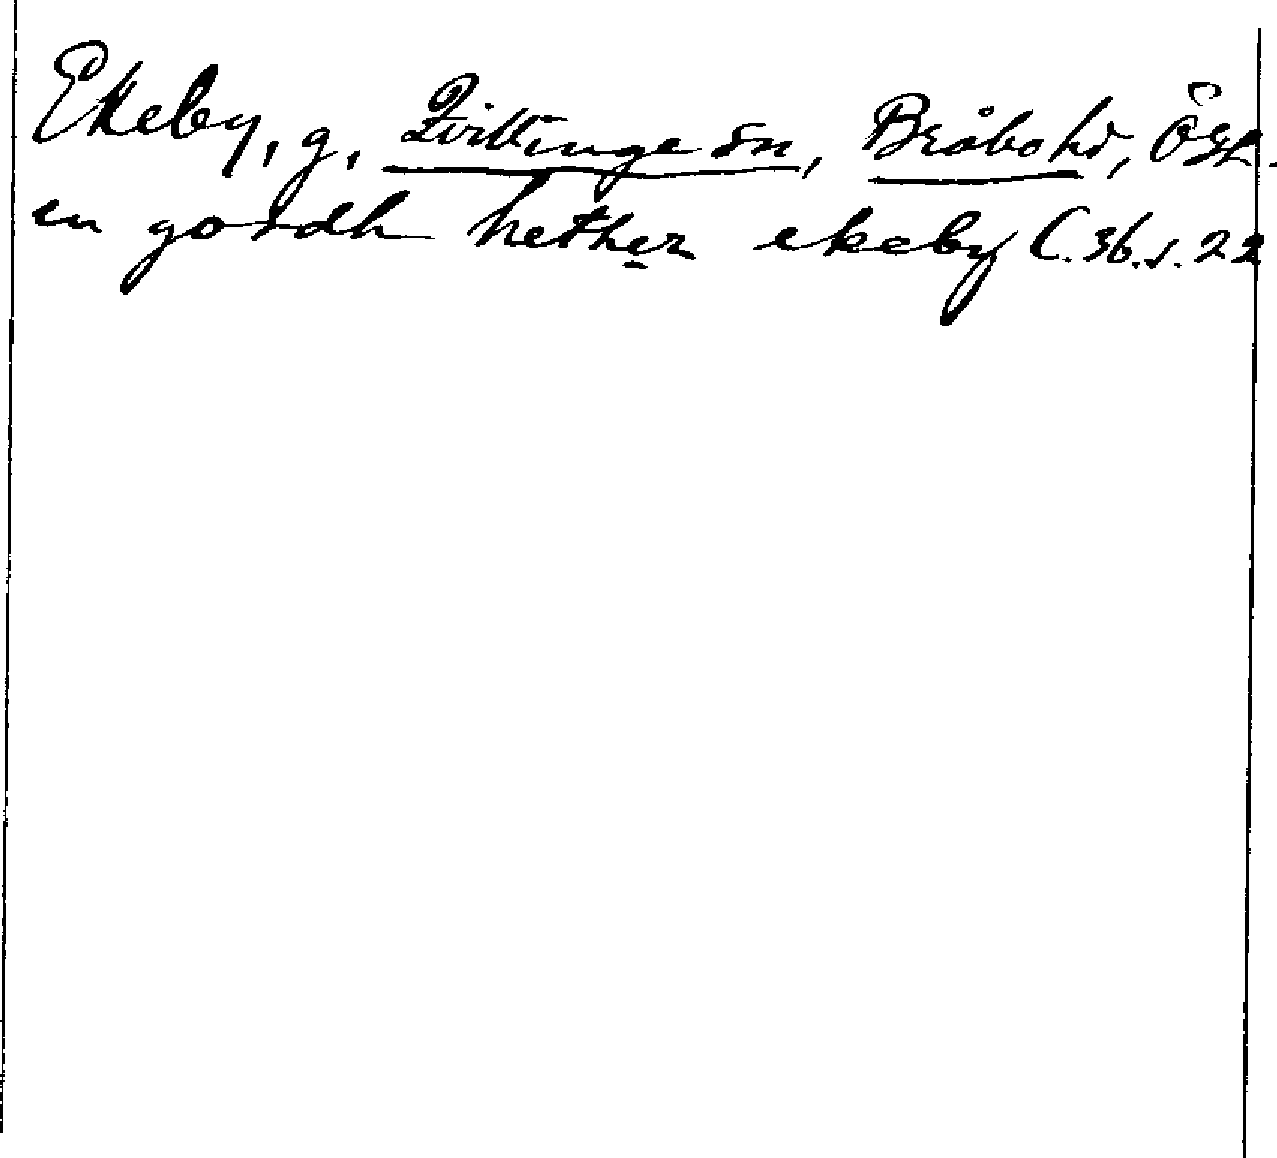 Ekeby, g, Kvillinge sn, Bråbo hd, Östl.
en gordh hether ekeby C. 36. s. 22